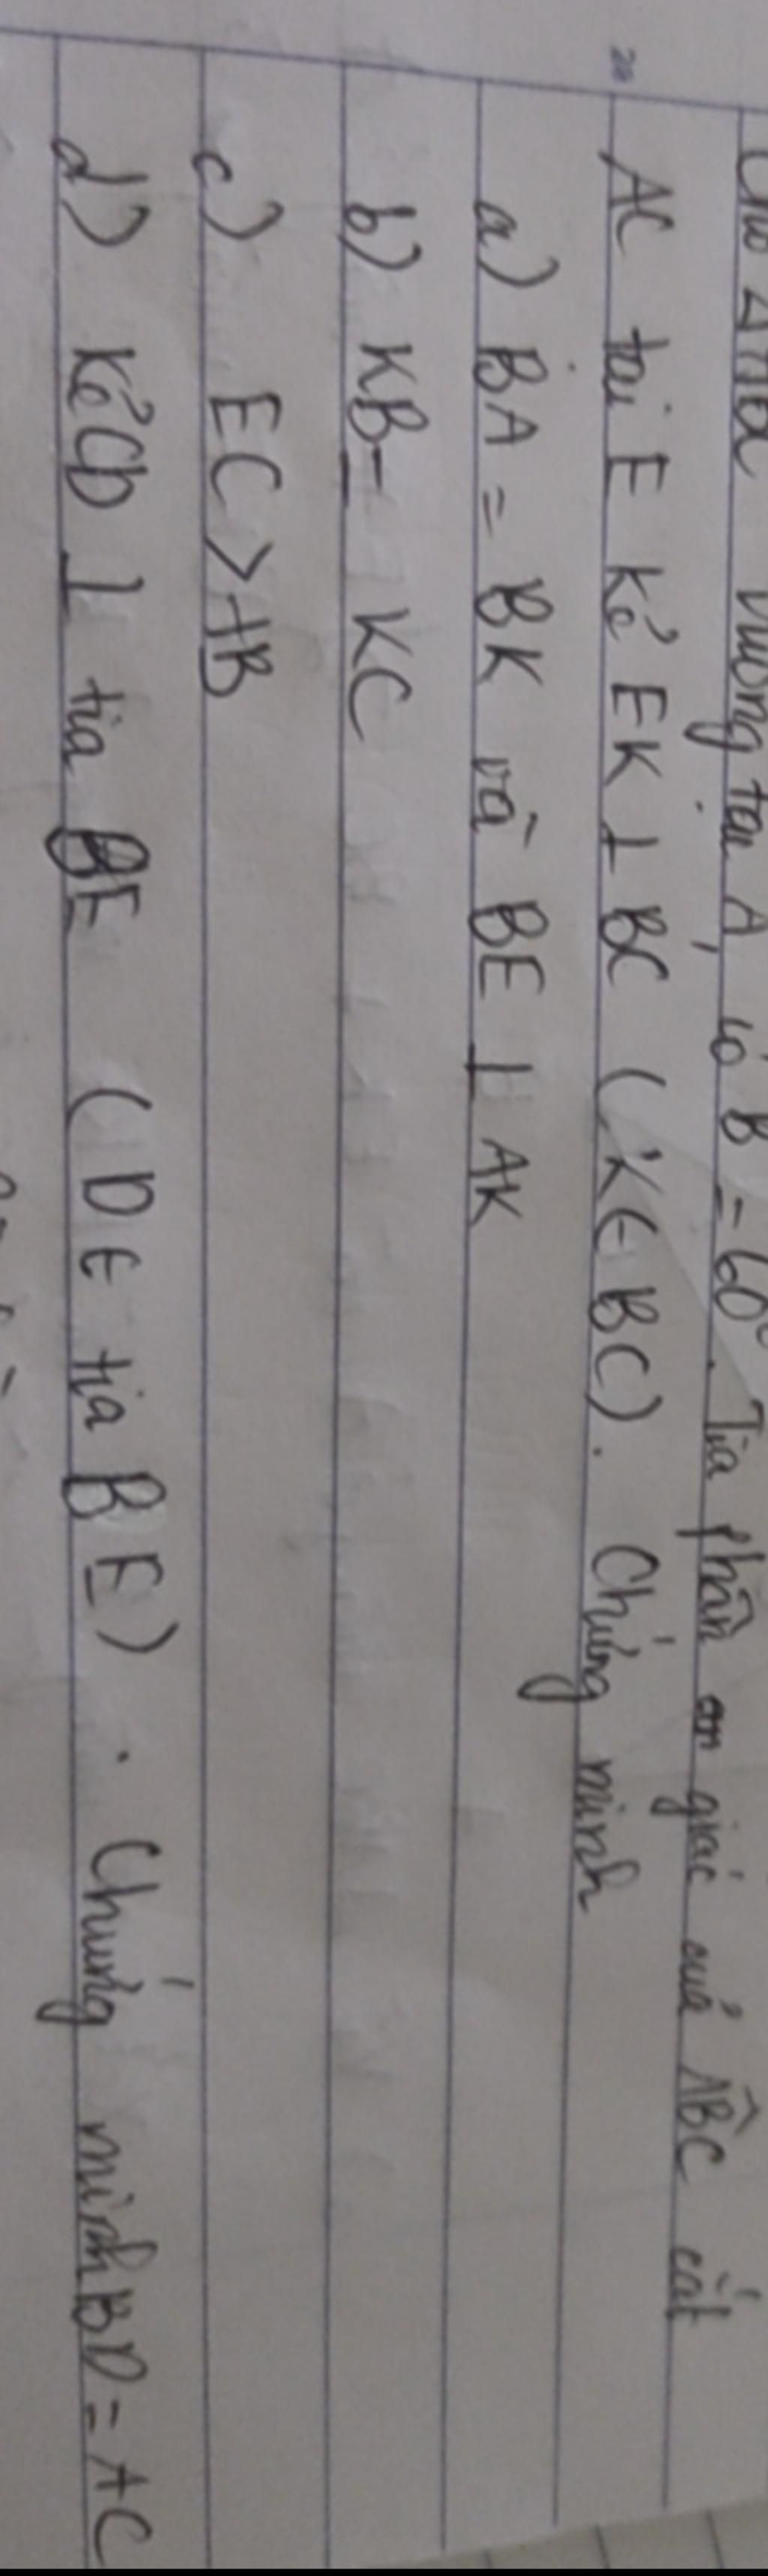 Cho ΔABC vuông tại A, có B = 60°. Tia phân giác của ABC cắt
AC tại E kẻ EK ⊥ BC (K ∈ BC). Chứng minh
a) BA = BK và BE ⊥ AK
b) KB = KC
c) EC > AB
d) kẻ CD ⊥ tia BE (D ∈ tia BE). Chứng minh BD = AC